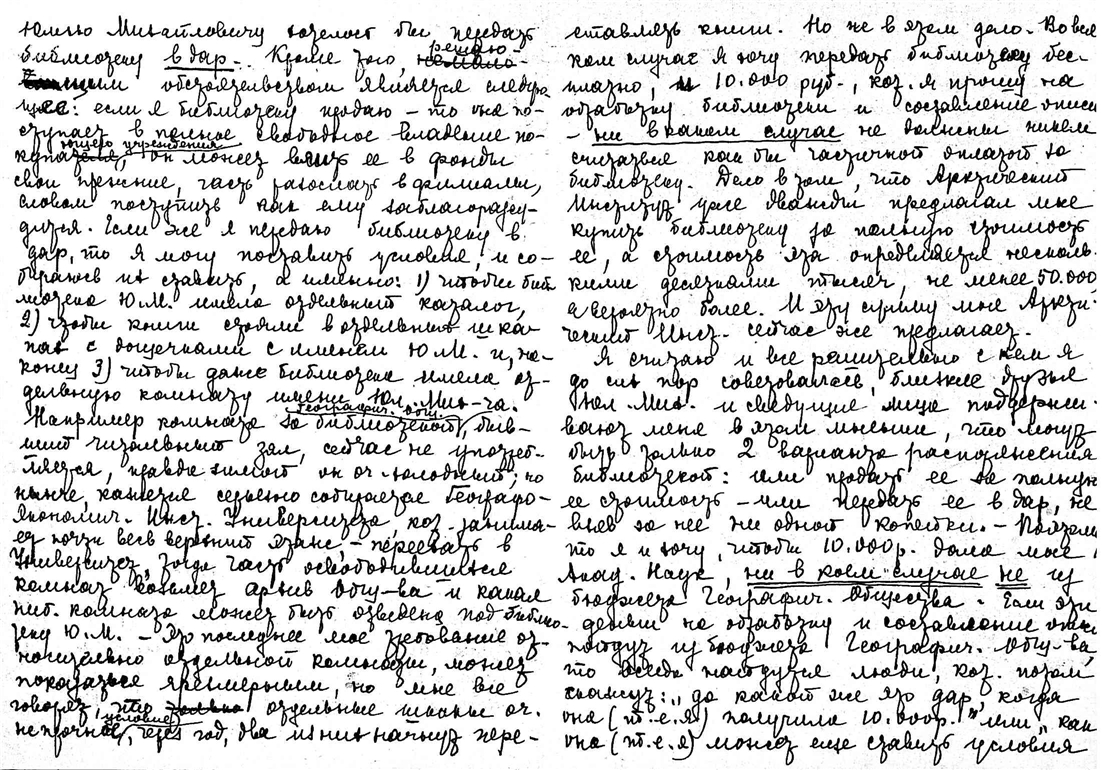 Юлию Михайловичу хотелось бы передать
библиотеку в дар. Кроме того, решаю-
щим обстоятельством является следую-
щее: если я библиотеку продаю – то она по-
ступает в полное свободное владение по-
купающего учреждения, он может влить ее в фонды
свои прежние, часть разослать в филиалы,
словом поступить как ему заблагорассу-
дится. Если же я передаю библиотеку в
дар, то я могу поставить условия, и со-
бираюсь их ставить, а именно: 1) чтобы биб-
лиотека Ю.М. имела отдельный каталог,
2) чтобы книги стояли в отдельных шка-
пах с дощечками с именем Ю.М. и, на-
конец 3) чтобы даже библиотека имела от-
дельную комнату имени Юл. Мих-ча.
Например комната за библиотекой Географич. Общ., быв-
ший читальный зал, сейчас не употреб-
ляется, правда зимой он оч. холодный; но
нынче, кажется серьезно собирается Географо-
Экономич. Инст. Университета, кот. занима-
ет почти весь верхний этаж, – переехать в
Университет, тогда часть освободившихся
комнат возьмет архив Общ-ва и какая
ниб. комната может быть отведена под библио-
теку Ю.М. – Это последнее мое требование от-
носительно отдельной комнаты, может
показаться чрезмерным, но мне все
говорят, что отдельные шкапы оч.
непрочное условие, через год, два из них начнут пере-
ставлять книги. Но не в этом дело. Во вся-
ком случае я хочу передать библиотеку бес-
платно, и 10.000 руб., кот. я прошу на
обработку библиотеки и составление описи
– ни в каком случае не должны никем
считаться как бы частичной оплатой за
библиотеку. Дело в том, что Арктический
Институт уже дважды предлагал мне
купить библиотеку за полную стоимость
ее, а стоимость эта определяется несколь-
кими десятками тысяч, не менее 50.000
а вероятно более. И эту сумму мне Аркти-
ческий Инст. сейчас же предлагает.
Я считаю и все решительно с кем я
до сих пор советовалась, близкие друзья
Юл. Мих. и сведущие лица поддержи-
вают меня в этом мнении, что могут
быть только 2 варианта распоряжения
библиотекой: или продать ее за полную
ее стоимость – или передать ее в дар, не
взяв за нее ни одной копейки. – Поэтому
то я и хочу, чтобы 10.000 р. дала мне
Акад. Наук, ни в коем случае не из
бюджета Географич. Общества. Если эти
деньги на обработку и составление описи
пойдут из бюджета Географич. Общ-ва,
то всегда найдутся люди, кот. потом
скажут: „да какой же это дар, когда
она (т.е. я) получила 10.000 р.“ или „как
она (т.е. я) может еще ставить условия